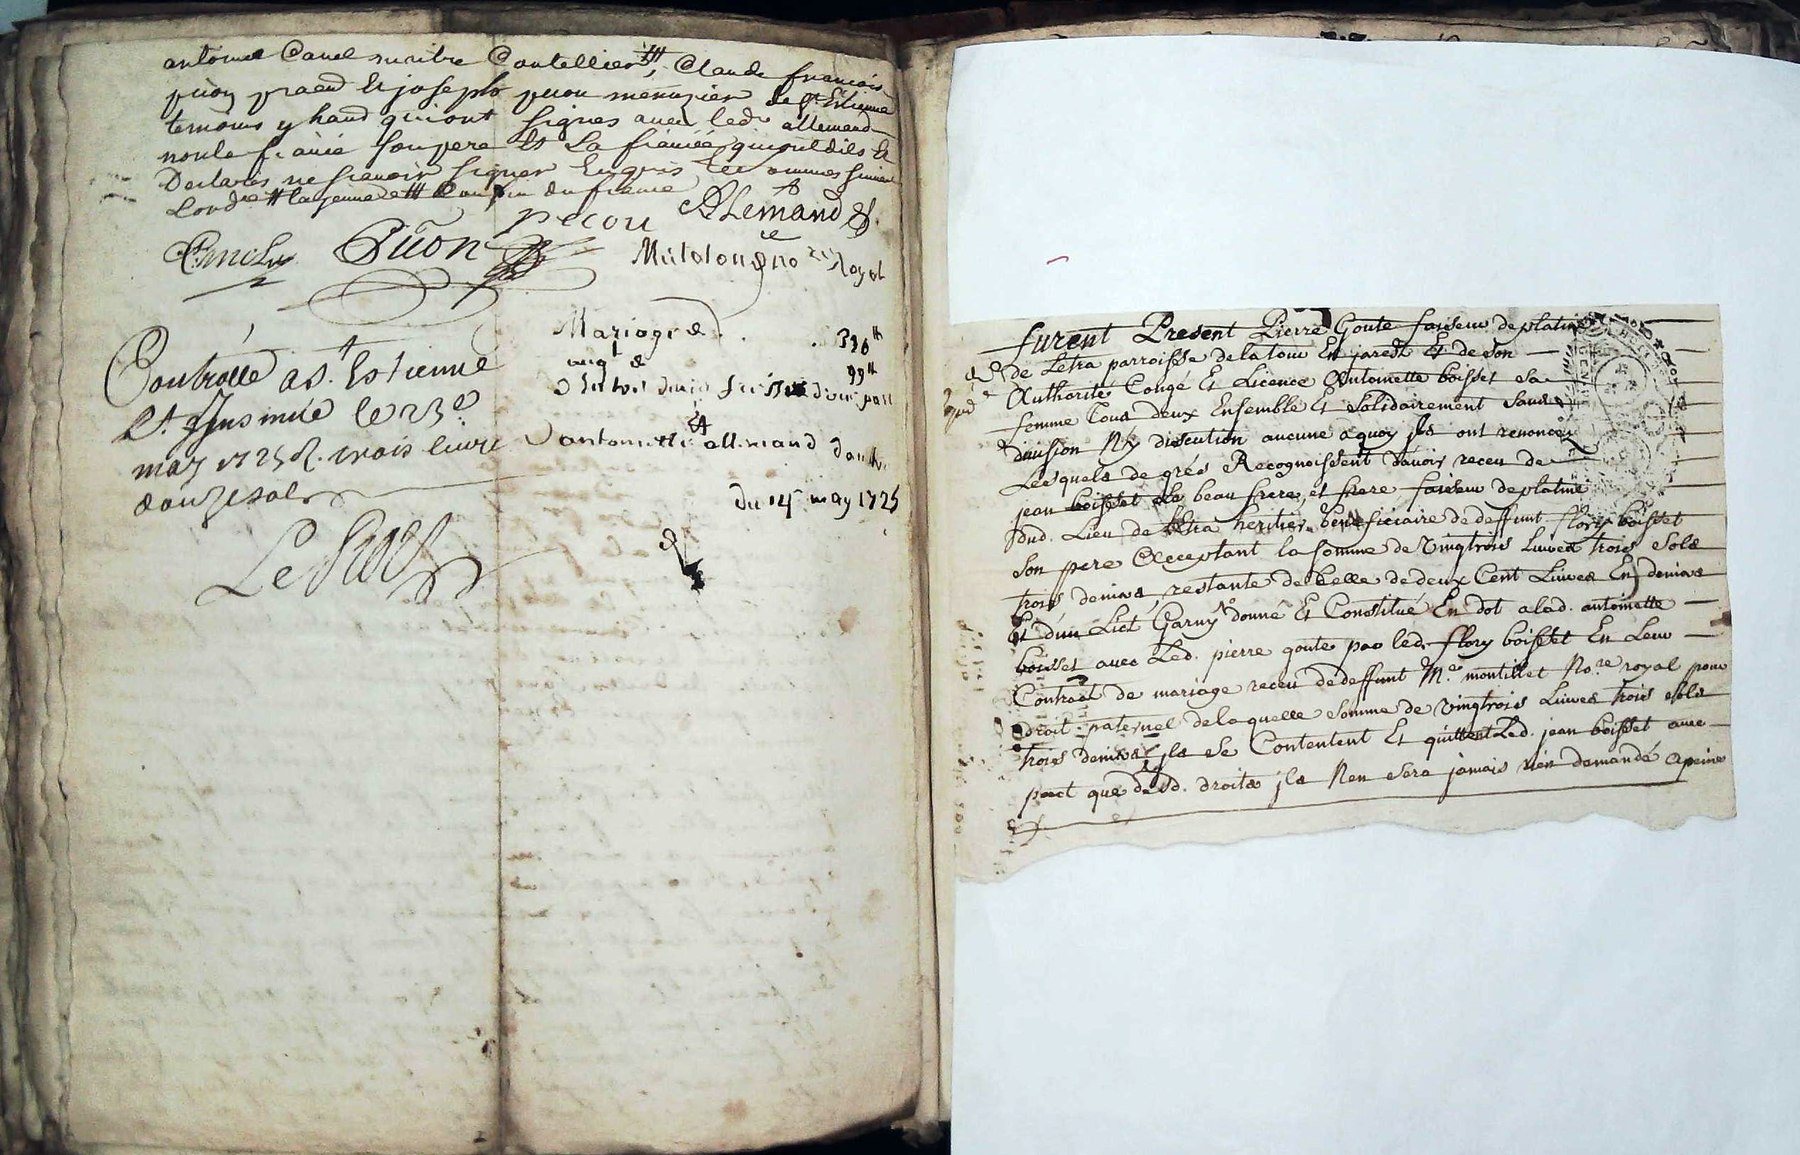 antoine Canel mᵉ Coutellier, Claude françois
puon praend et joseph puou menuzier de Sᵗ Etienne
temoins y hand qui ont signes avec led. allemand
non le fiancé son pere et la fiancée qui ont dits et
Declarés ne scavoir signer Enquis
du fiancé
Pecou Allemand
Puon royal
Mariage de
396ᵗᵗ
augᵗ de
99ᵗᵗ
d'une part
Et
d'antoinette allemand
du 14 may 1725
Controllé a Sᵗ. Estienne
Et Insinué le 23ᵉ
may 1725 R. trois livre
douze sols
furent Present Pierre Goute faiseur de platine
de Letra parroisse de la tour En jarest Et de son
Authorité Congé Et Licence Antoinette boisset sa
femme Tous deux Ensemble Et solidairement sans
division Ny discution aucune a quoy jls ont renoncez
Lesquels de grés Recognoissent d'avoir receu de
jean boisset beau frere, et frere faiseur de platine
dud. Lieu de Letra heritier beneficiaire de deffunt flory boisset
son pere Acceptant la somme de Vingtrois Livres trois sols
trois deniers, restante de Celle de deux Cent Livres En deniers
Et d'un Lict Garny donné Et Constitué En dot a lad. antoinette
boisset avec Led. pierre goute par led. flory boisset En Leur
Contract de mariage receu de deffunt Mᵉ. montillet Noʳᵉ royal pour
droit paternel de laquelle somme de Vingtrois Livres trois sols
trois deniers jls se Contentent Et quittent Led. jean boisset avec
pact que desd. droits jls N'en sera jamais rien demandé a peine